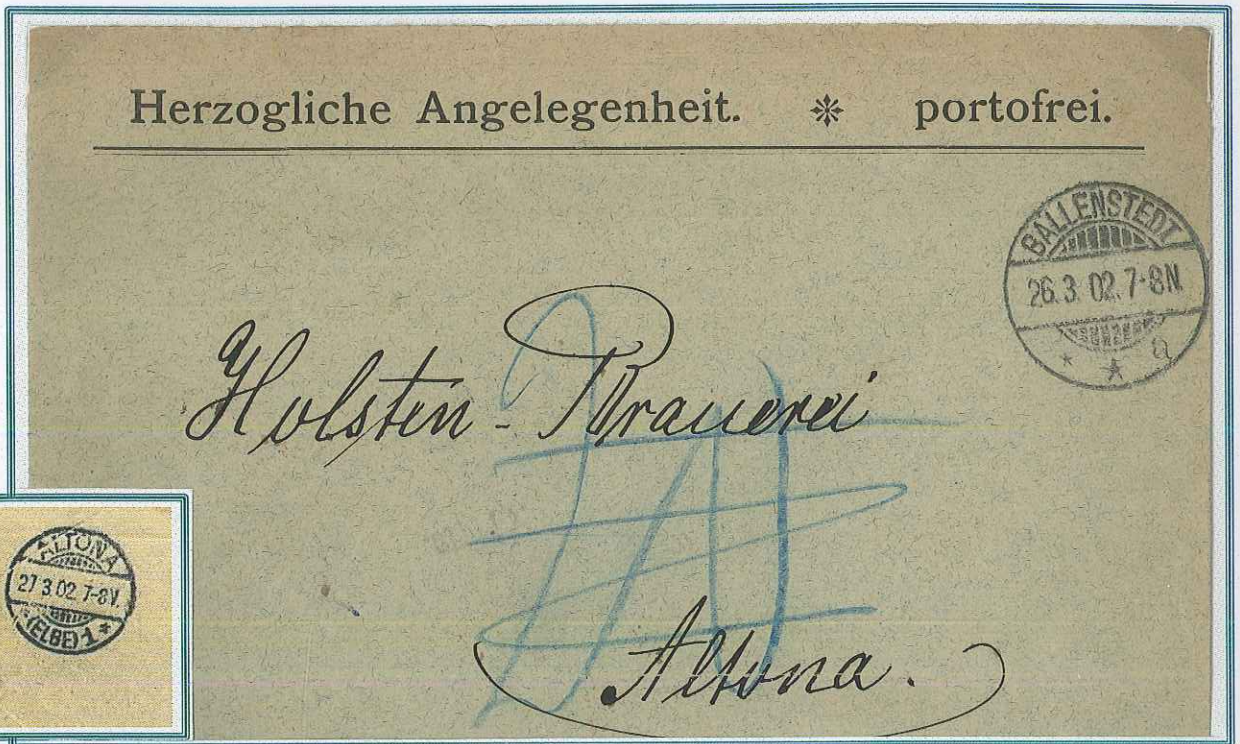 Herzogliche Angelegenheit. * portofrei.
BALLENSTEDT
26.3.02.7-8N.
* * a
Holsten-Brauerei
Altona.
ALTONA
27.3.02.7-8V.
* (ELBE) 1 *